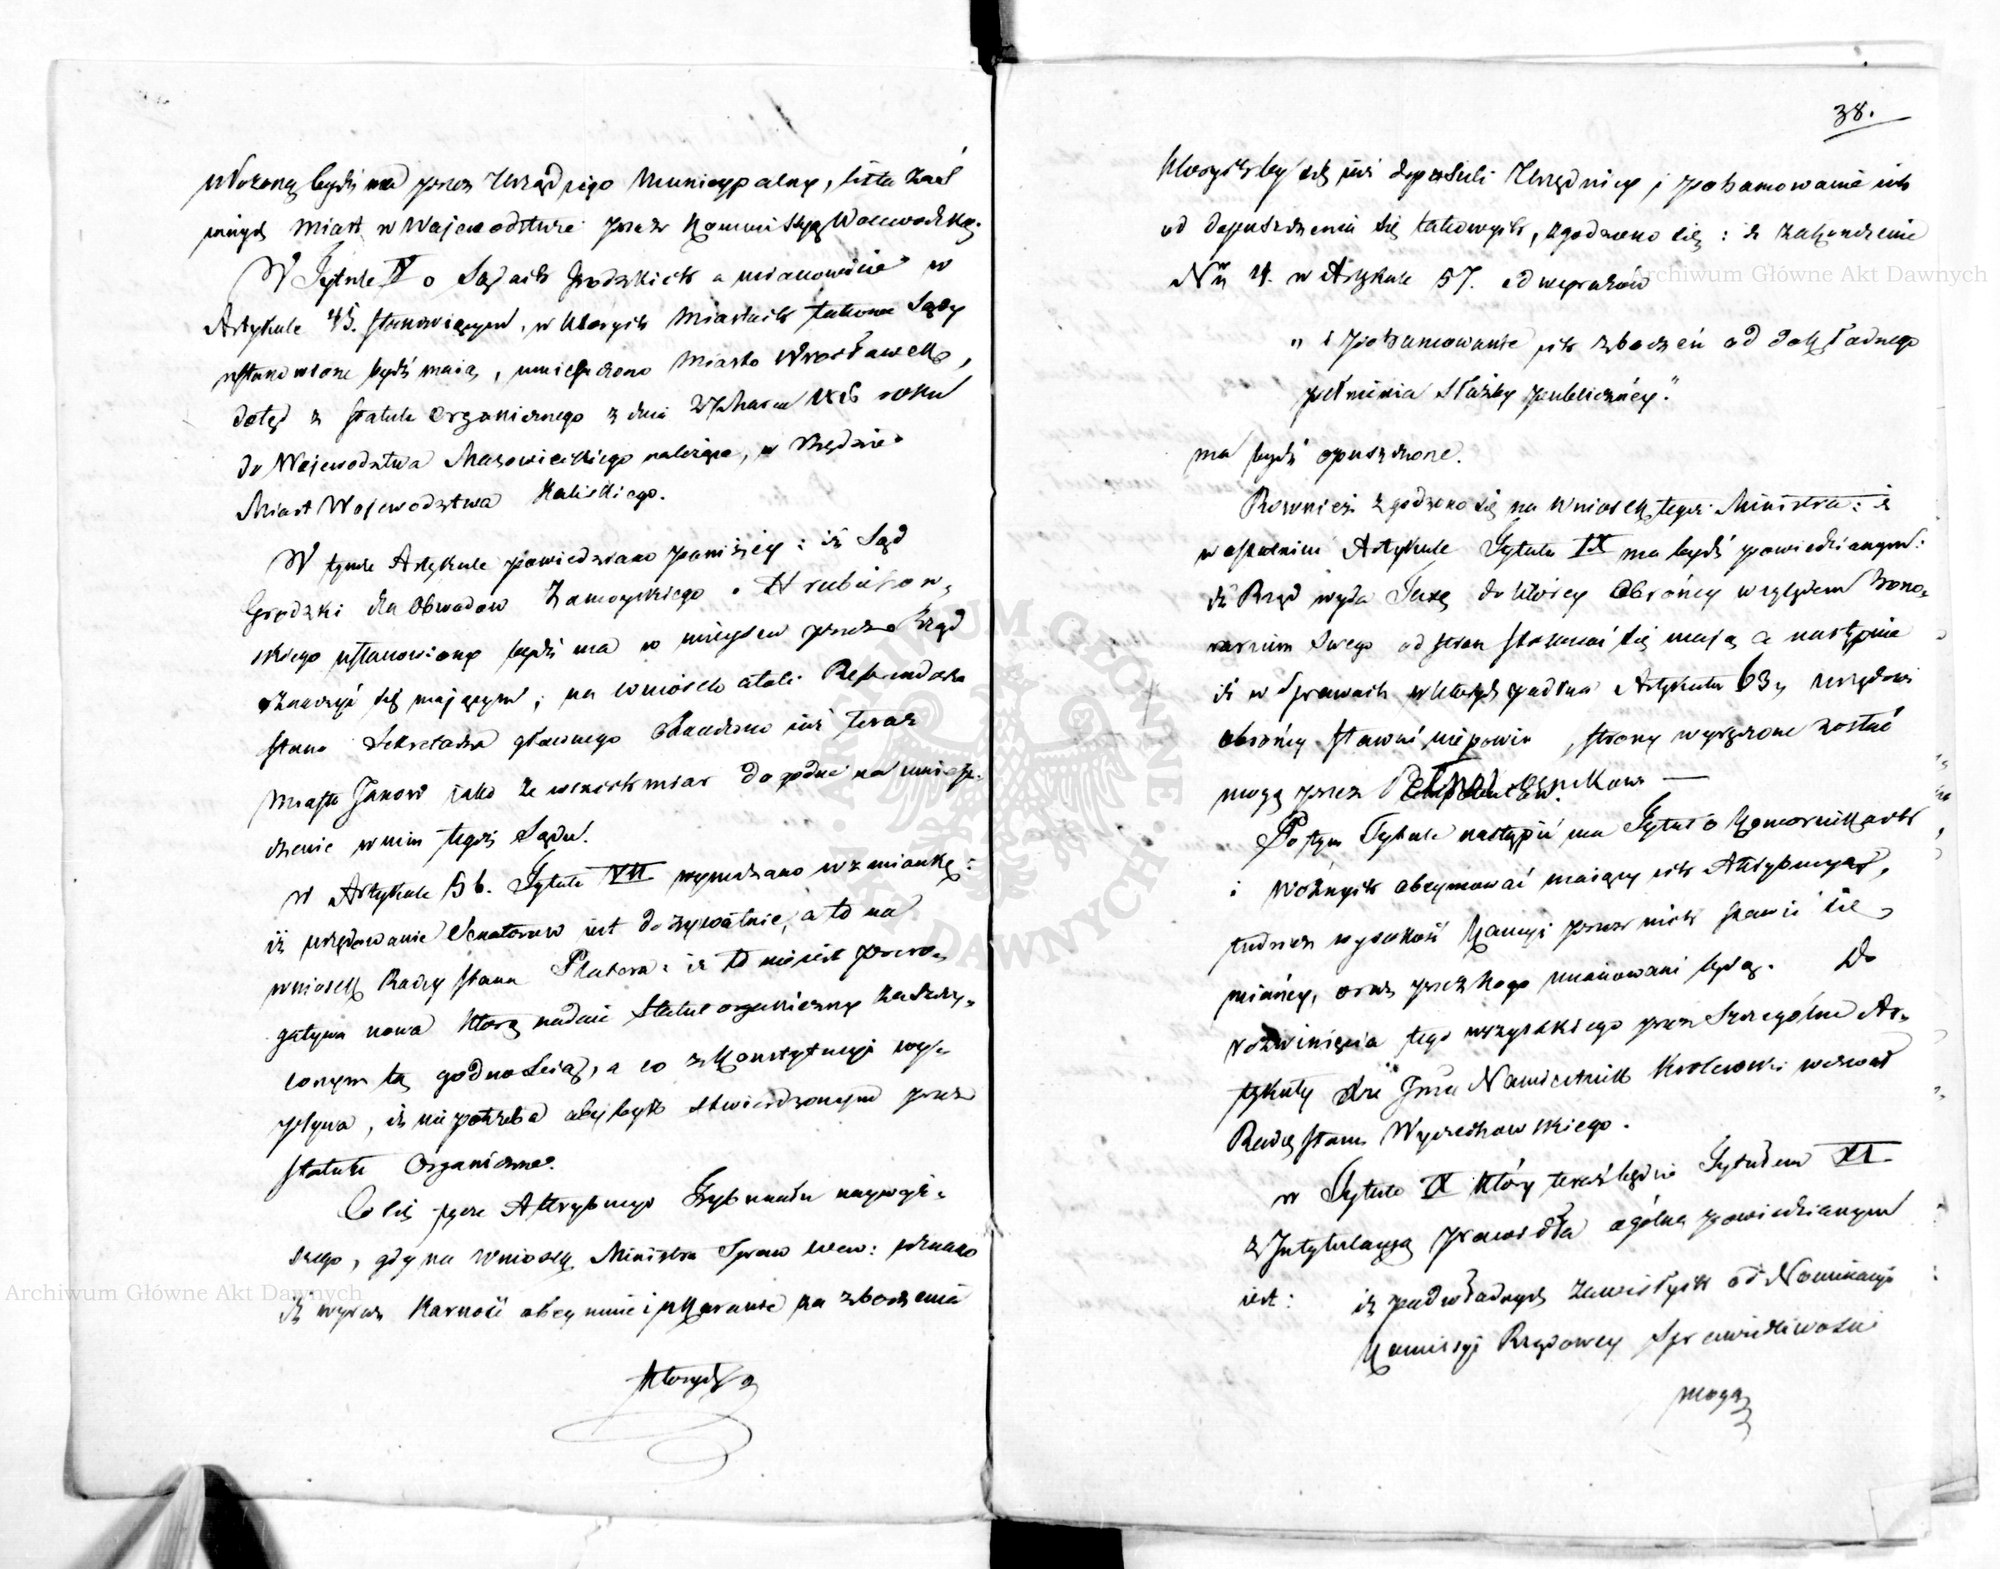 ułożoną bydź ma przez Urząd jego Municypalny, lista zaś
innych Miast w Wojewodztwie przez Kommissyą Woiewodzką.
W Tytule IV o Sądach Grodzkich a mianowicie w
Artykule 45. stanowiącym, w których Miastach takowe Sądy
ustanowione bydź maią, umieszczono Miasto Wrocławek,
dotąd z Statutu Organicznego z dnia Marca 1816 roku
do Wojewodztwa Mazowieckiego należące, w rzędzie
Miast Wojewodztwa Kaliskiego.
W tymże Artykule powiedziano poniżey: iż Sąd
Grodzki dla Obwodow Zamoyskiego i Hrubieszow-
skiego ustanowiony bydź ma w mieyscu przez Rząd
oznaczyć się mającym; na wniosek atoli Referendarza
Stanu Sekretarza głównego już teraz
Miasto Janow jako ze wszech miar dogodne na umieszcz-
czenie w nim tegoż Sądu.
W Artykule 56. Tytułu VII wymazano wzmiankę:
iż urzędowanie Senatorow jest dożywotnie, a to na
wniosek Radcy Stanu Platera: iż to nie jest prero-
gatywa nowa którą nadaie Statut organiczny zaszczy-
conym tą godnością, a co z Konstytucyi wy-
pływa, iż nie potrzeba aby było stwierdzonym przez
Statut Organiczne.
Co się tycze Attrybucyi Trybunału naywyż-
szego, gdy na wniosek Ministra Spraw Wew: uznano
iż wyraz Karność obeymuie i ukaranie za zboczenia
których
38.
którychby się już dopuścili Urzędnicy i pohamowanie ich
od dopuszczenia się takowych, zgodzono się: iż zakończenie
Nru 4. w Artykule 57. od wyrazów
„ i pohamowanie ich zboczeń od dokładnego
pełnienia służby publiczney."
ma bydź opuszczone.
Rownież zgodzono się na wniosek tegoż Ministra: iż
w ostatnim Artykule Tytułu IX ma bydź powiedzianym:
iż Rząd wyda Taxę do którey Obrońcy względem hono-
rarium swego od stron stosować się mają a następnie
iż w sprawach w których podług Artykułu 63, urzędowi
obrońcy stawać niepowin , strony wyręczone zostać
mogą przez Pełnomocnikow —
Po tym Tytule nastąpić ma Tytuł o Komornikach
i Woźnych obeymować maiący ich Attrybucye,
tudzież wysokość Kaucyi przez nich stawić się
mianey, oraz przez kogo mianowani będą. Do
rozwinięcia tego wszystkiego przez Szczegolne Ar-
tykuły JOXże Jmć Namiestnik Krolewski wezwał
Radcę Stanu Wyczechowskiego.
w Tytule IX który teraz będzie Tytułem XI
z Intytulacyą prawidła ogólne powiedzianym
iest: iż podwładnych zawisłych od Nominacyi
Kommissyi Rządowey Sprawiedliwości
mogą
Archiwum Główne Akt Dawnych
Archiwum Główne Akt Dawnych
ARCHIWUM GŁÓWNE AKT DAWNYCH